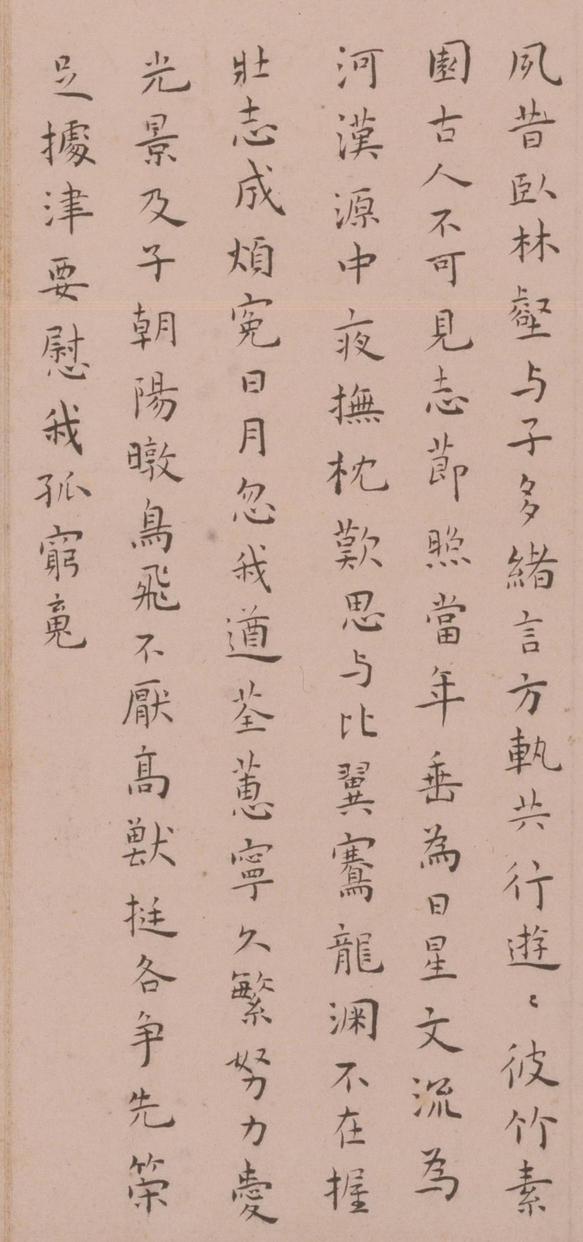 夙昔臥林壑与子多緒言方執共行遊〻彼竹素
園古人不可見志節照當年垂為日星文流為
河漢源中夜撫枕歎思与比翼騫龍淵不在握
壯志成煩冤日月忽我遒荃蕙寧久繁努力愛
光景及子朝陽暾鳥飛不厭高獸挺各爭先策
足據津要慰我孤窮䰟